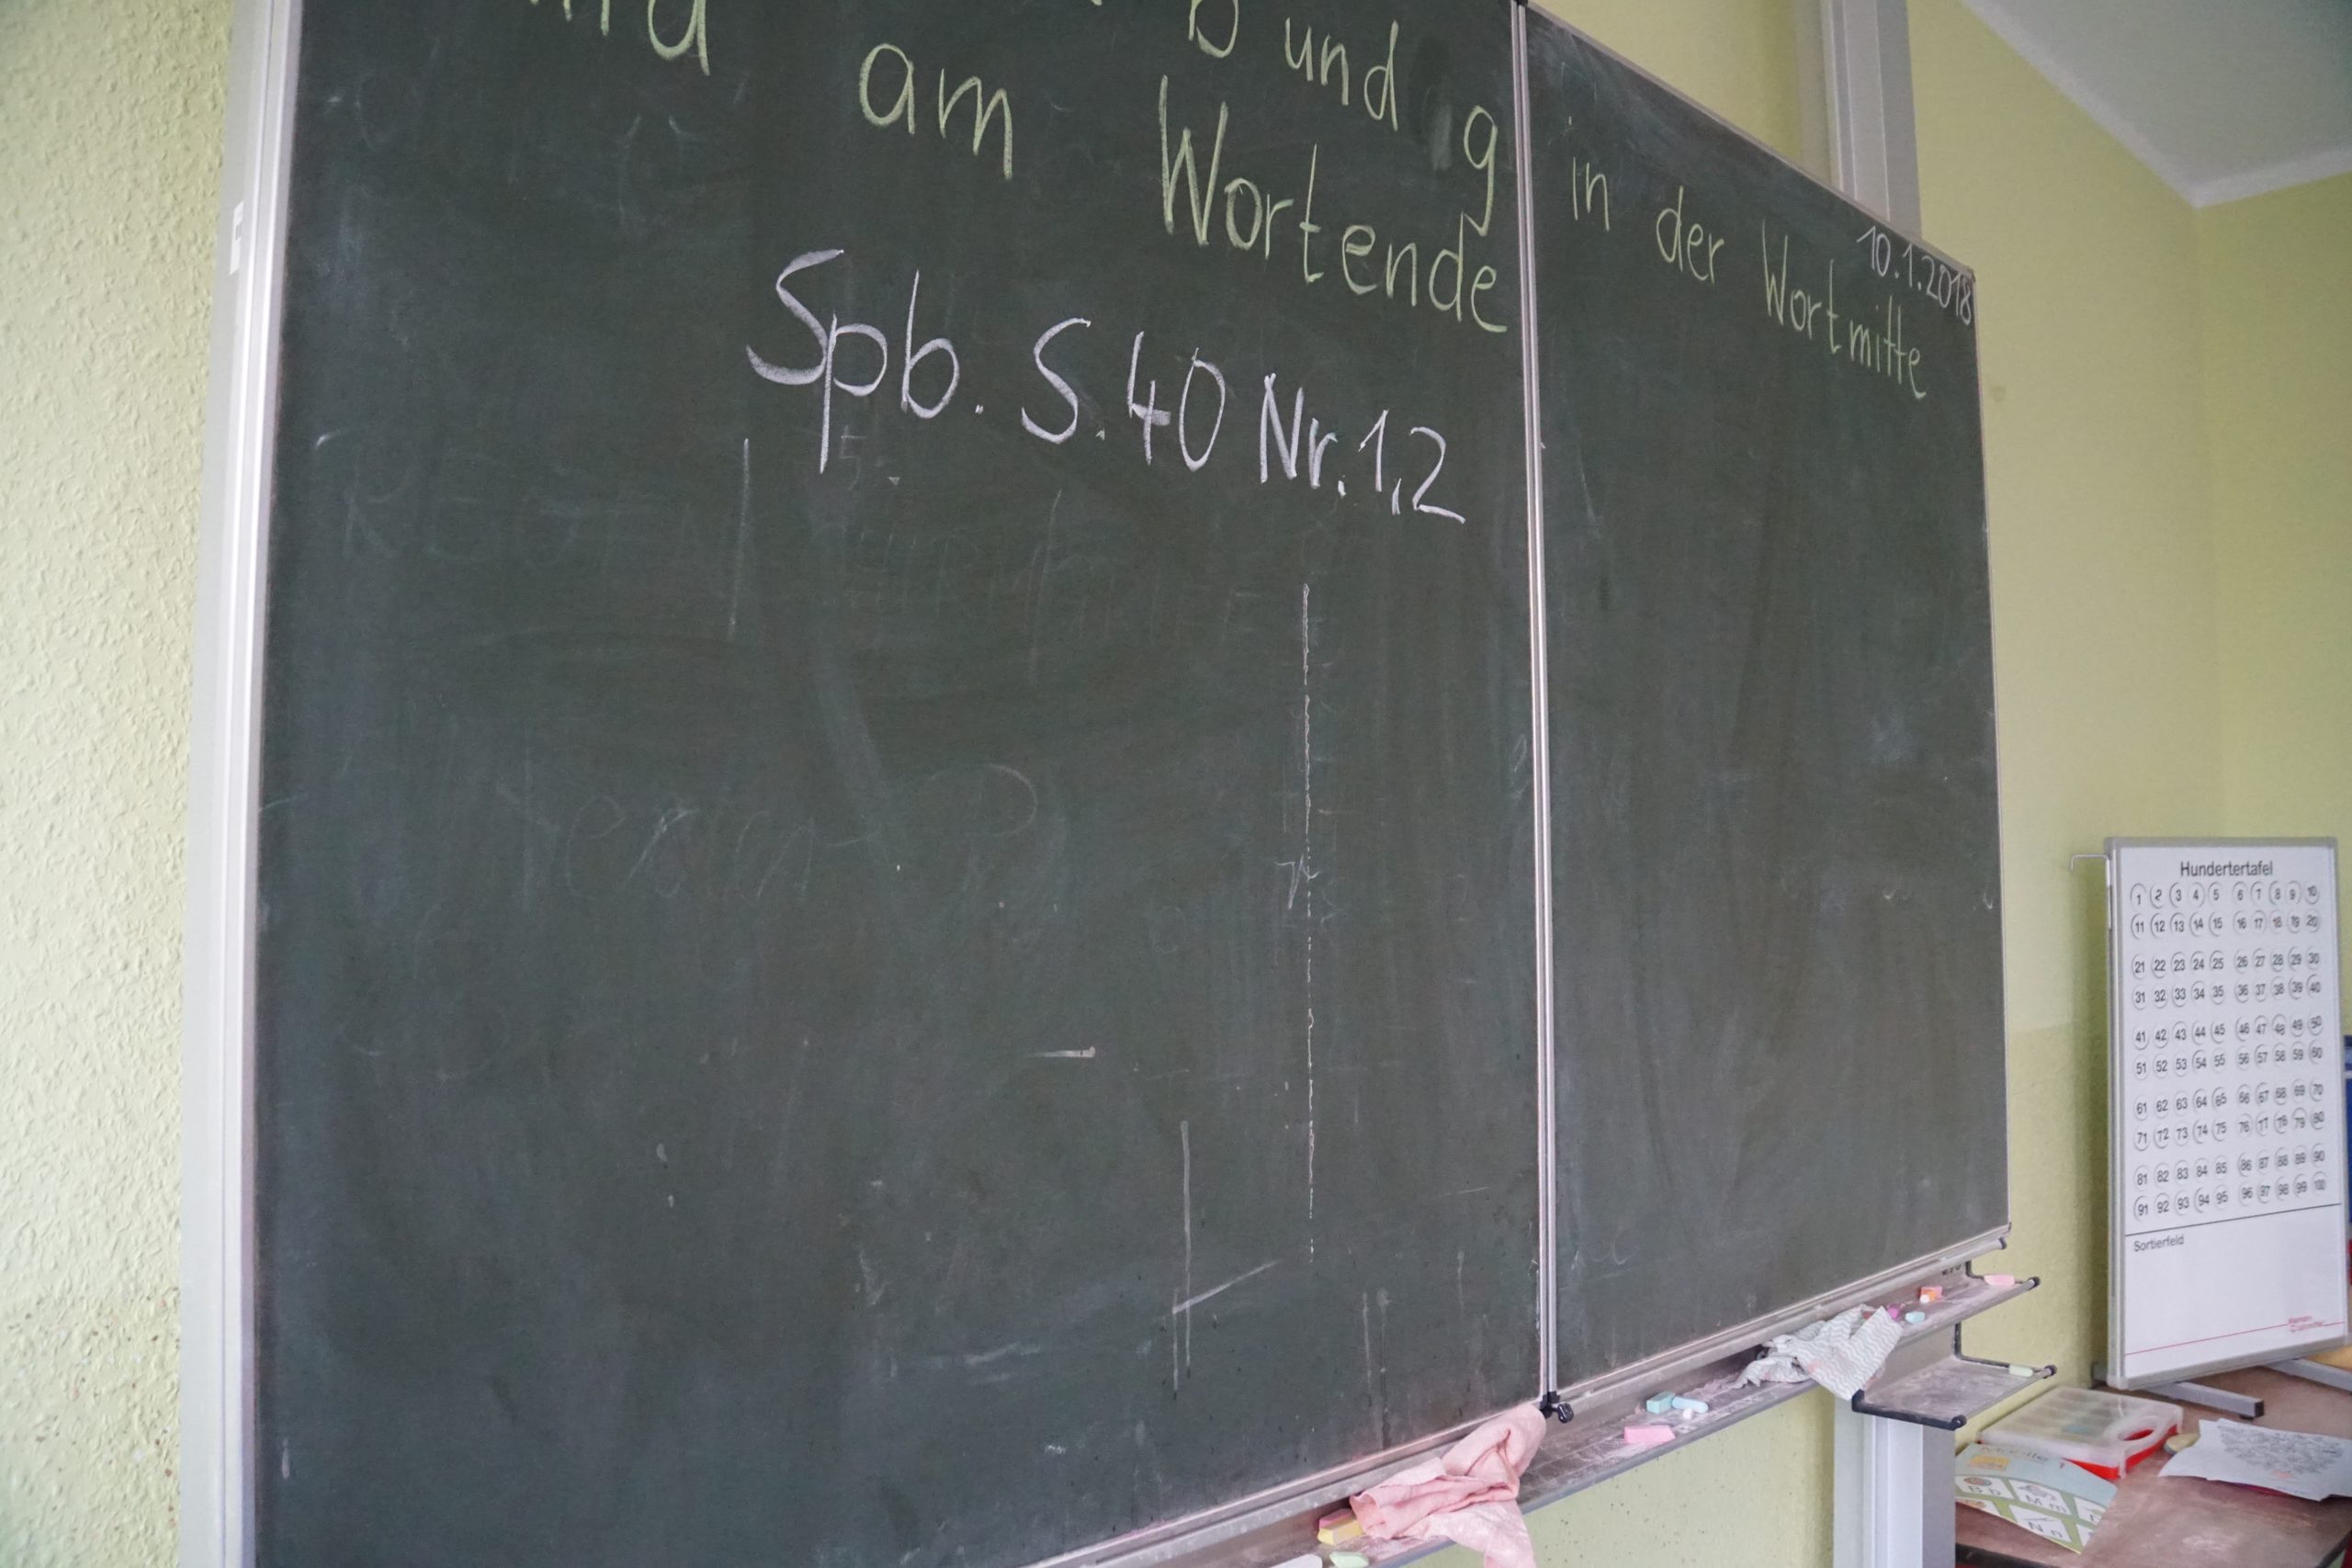 b und g in der Wortmitte
am Wortende
10.1.2018
Spb. S. 40 Nr. 1,2
Hundertertafel
1 2 3 4 5 6 7 8 9 10
11 12 13 14 15 16 17 18 19 20
21 22 23 24 25 26 27 28 29 30
31 32 33 34 35 36 37 38 39 40
41 42 43 44 45 46 47 48 49 50
51 52 53 54 55 56 57 58 59 60
61 62 63 64 65 66 67 68 69 70
71 72 73 74 75 76 77 78 79 80
81 82 83 84 85 86 87 88 89 90
91 92 93 94 95 96 97 98 99 100
Sortierfeld
B b M m
N n